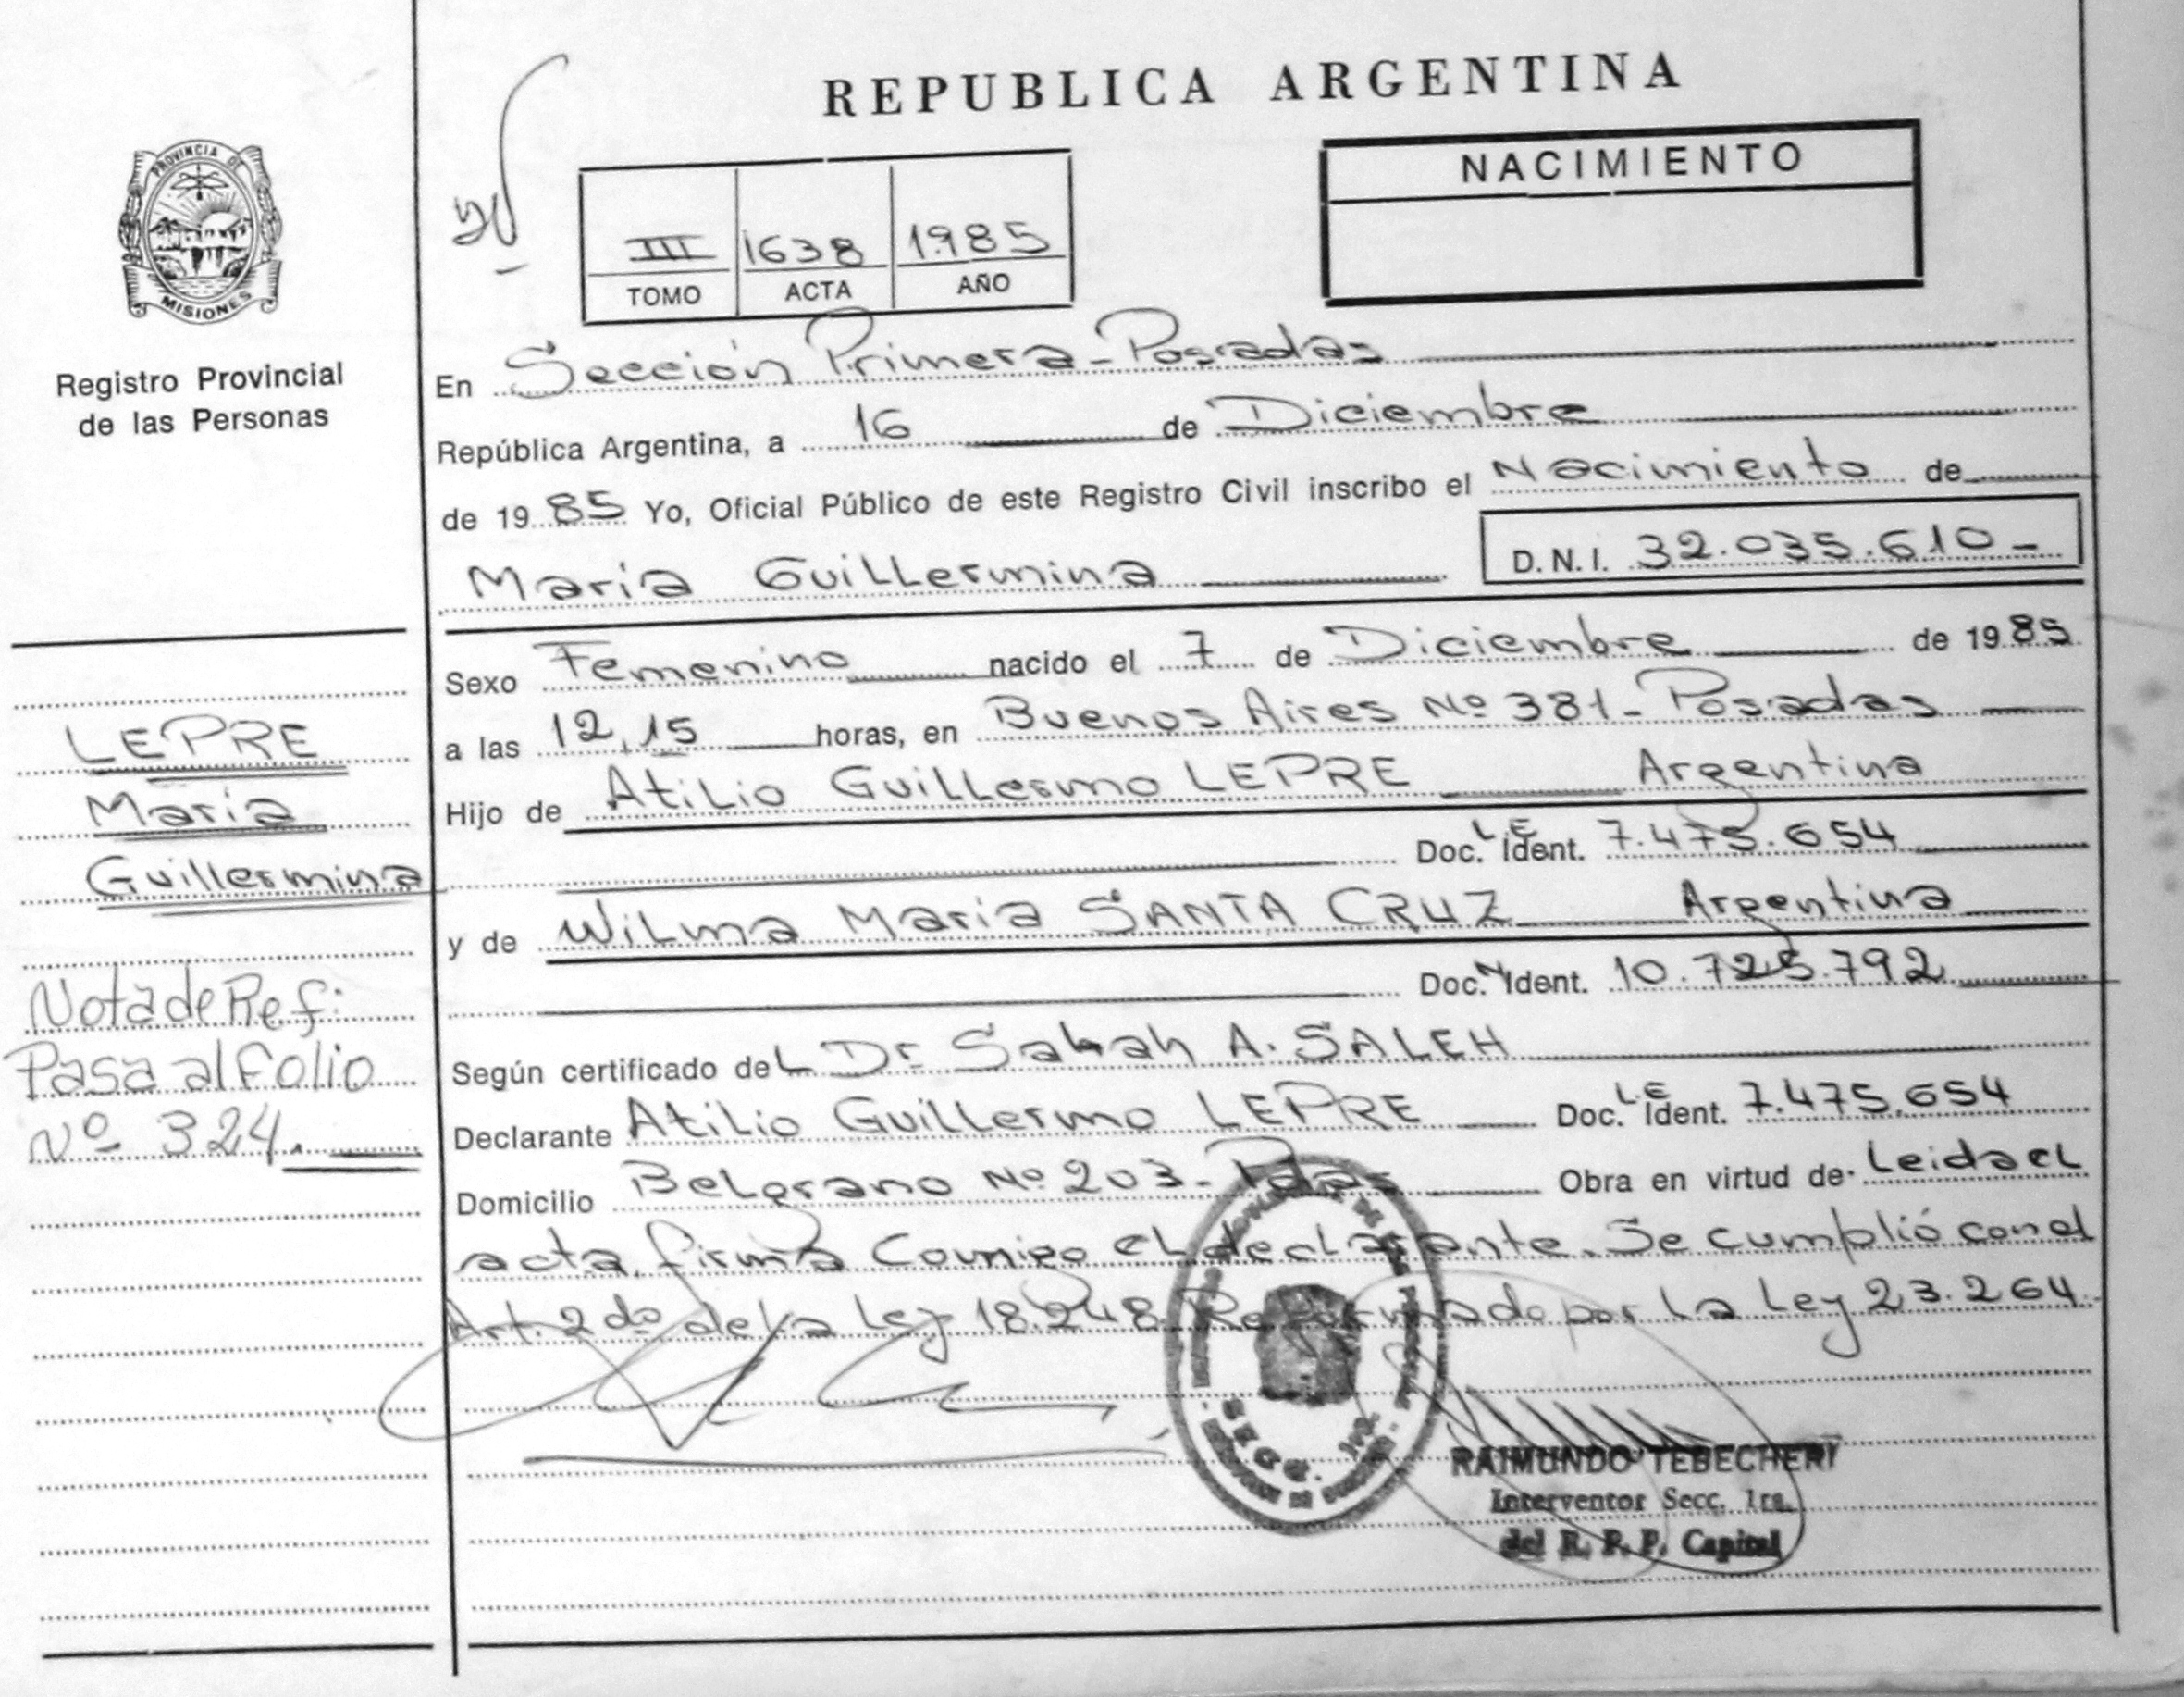 REPUBLICA ARGENTINA
PROVINCIA DE
MISIONES
Registro Provincial
de las Personas
NACIMIENTO
III 1638 1985
TOMO ACTA AÑO
En Sección Primera - Posadas
República Argentina, a 16 de Diciembre
de 1985 Yo, Oficial Público de este Registro Civil inscribo el Nacimiento de
María Guillermina D. N. I. 32.035.610-
Sexo Femenino nacido el 7 de Diciembre de 1985
a las 12,15 horas, en Buenos Aires Nº 381 - Posadas
Hijo de Atilio Guillermo LEPRE Argentina
Doc. L.E Ident. 7.475.654
y de Wilma María SANTA CRUZ Argentina
Doc. N Ident. 10.725.792
Según certificado del Dr Sabah A. SALEH
Declarante Atilio Guillermo LEPRE Doc. L.E Ident. 7.475.654
Domicilio Belgrano Nº 203 - Pdas Obra en virtud de Leida el
acta, firma Conmigo el declarante. Se cumplió con el
Art. 2do de la Ley 18.248 Reformado por la Ley 23.264.
LEPRE
María
Guillermina
Nota de Ref:
Pasa al folio
Nº 324.
RAIMUNDO TEBECHERI
Interventor Secc. 1ra.
del R. P. P. Capital